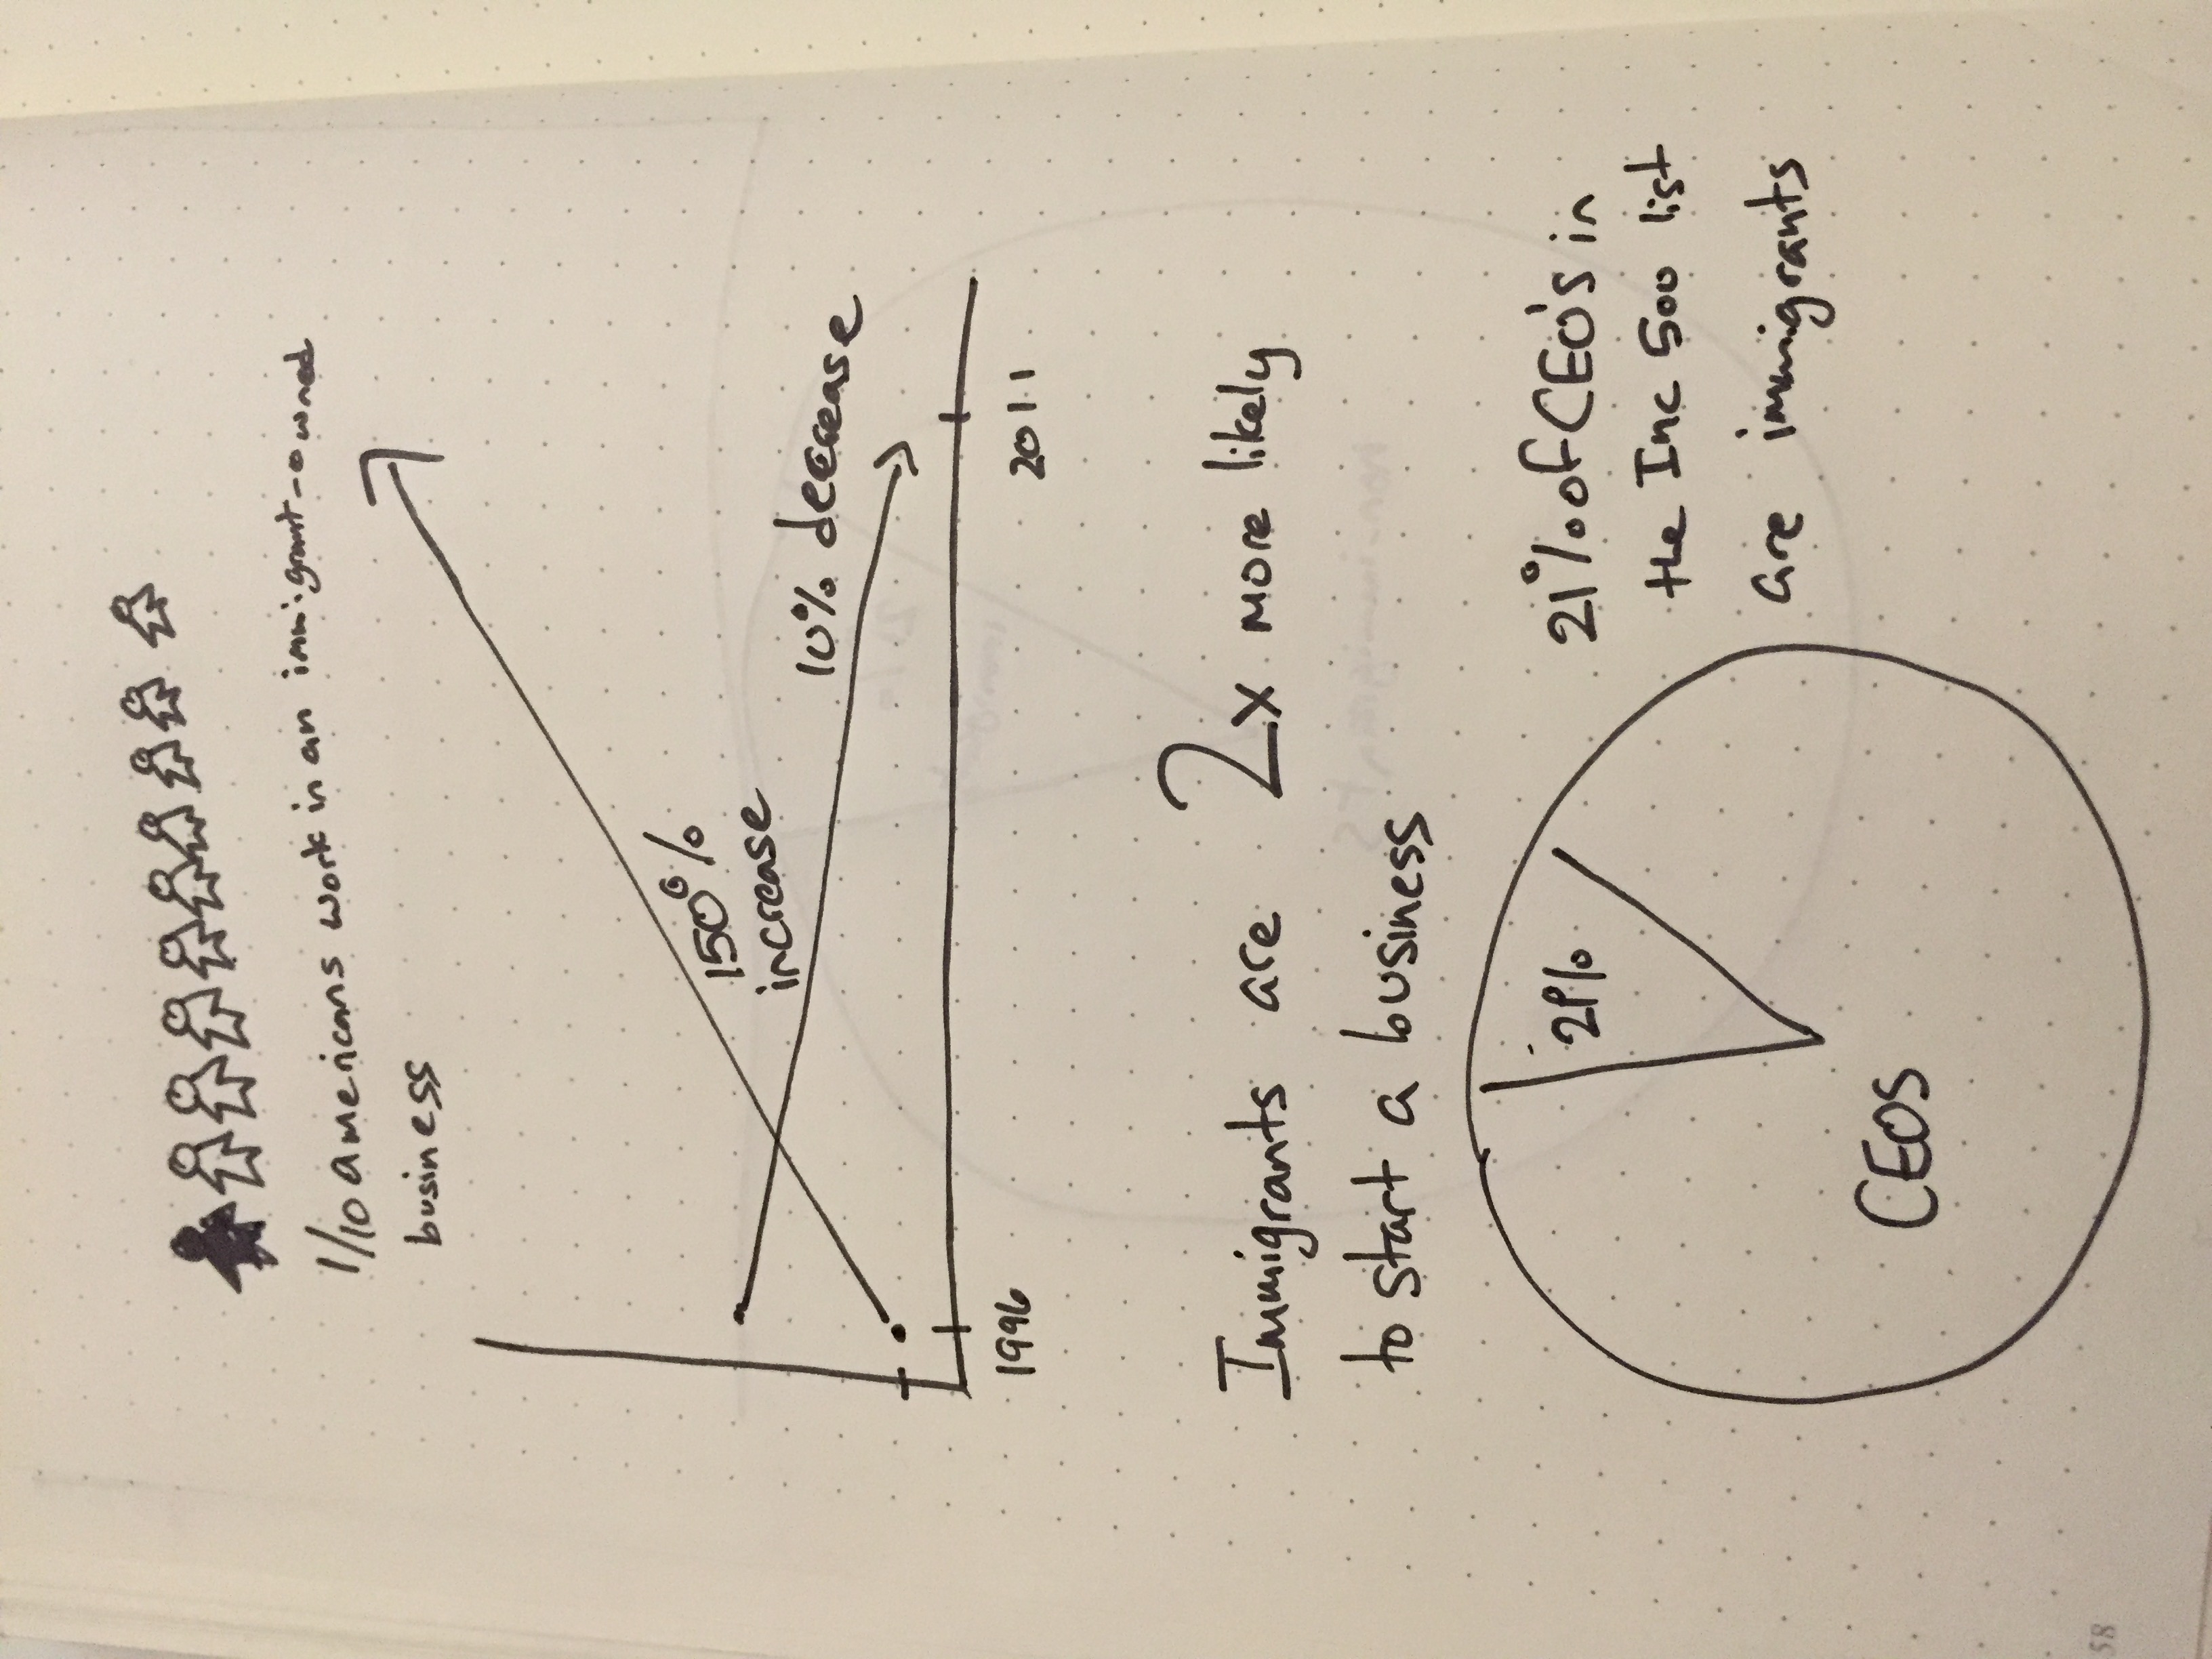 1/10 americans work in an immigrant-owned
business
150%
increase
10% decrease
1996
2011
Immigrants are 2x more likely
to start a business
21%
CEOS
21% of CEO's in
the Inc 500 list
are immigrants
58